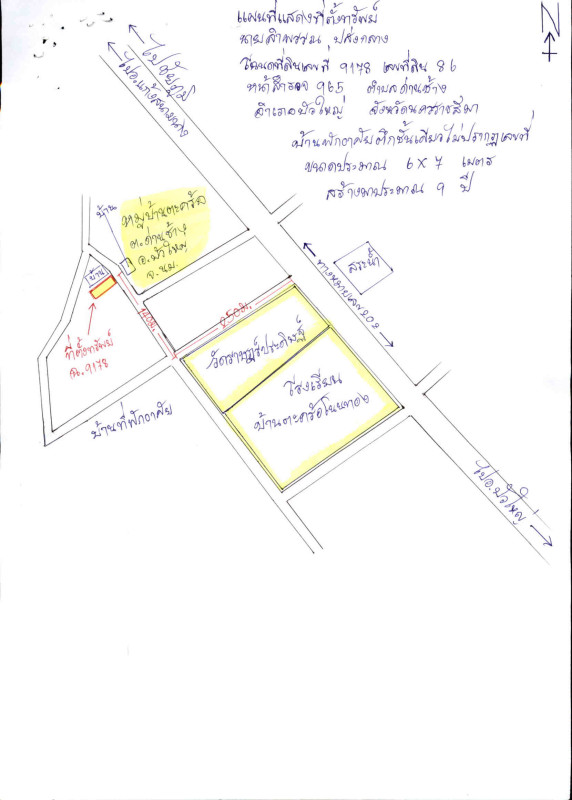 แผนที่แสดงที่ตั้งทรัพย์
นายลำพรรณ ปสังคลาง
โฉนดที่ดินเลขที่ 9178 เลขที่ดิน 86
หน้าสำรวจ 965 ตำบลด่านช้าง
อำเภอบัวใหญ่ จังหวัดนครราชสีมา
บ้านพักอาศัยตึกชั้นเดียวไม่ปรากฏเลขที่
ขนาดประมาณ 6 x 7 เมตร
สร้างมาประมาณ 9 ปี
N
ไปชัยภูมิ
ไปอ.แก้งสนามนาง
หมู่บ้านตะคร้อ
ต.ด่านช้าง
อ.บัวใหญ่
จ.นม.
บ้าน
บ้าน
ที่ตั้งทรัพย์
ฉ.9178
บ้านที่พักอาศัย
140ม.
250ม.
สระน้ำ
ทางหลวงเลข202
วัดราษฎร์ประดิษฐ์
โรงเรียน
บ้านตะคร้อโนนทอง
ไปอ.บัวใหญ่